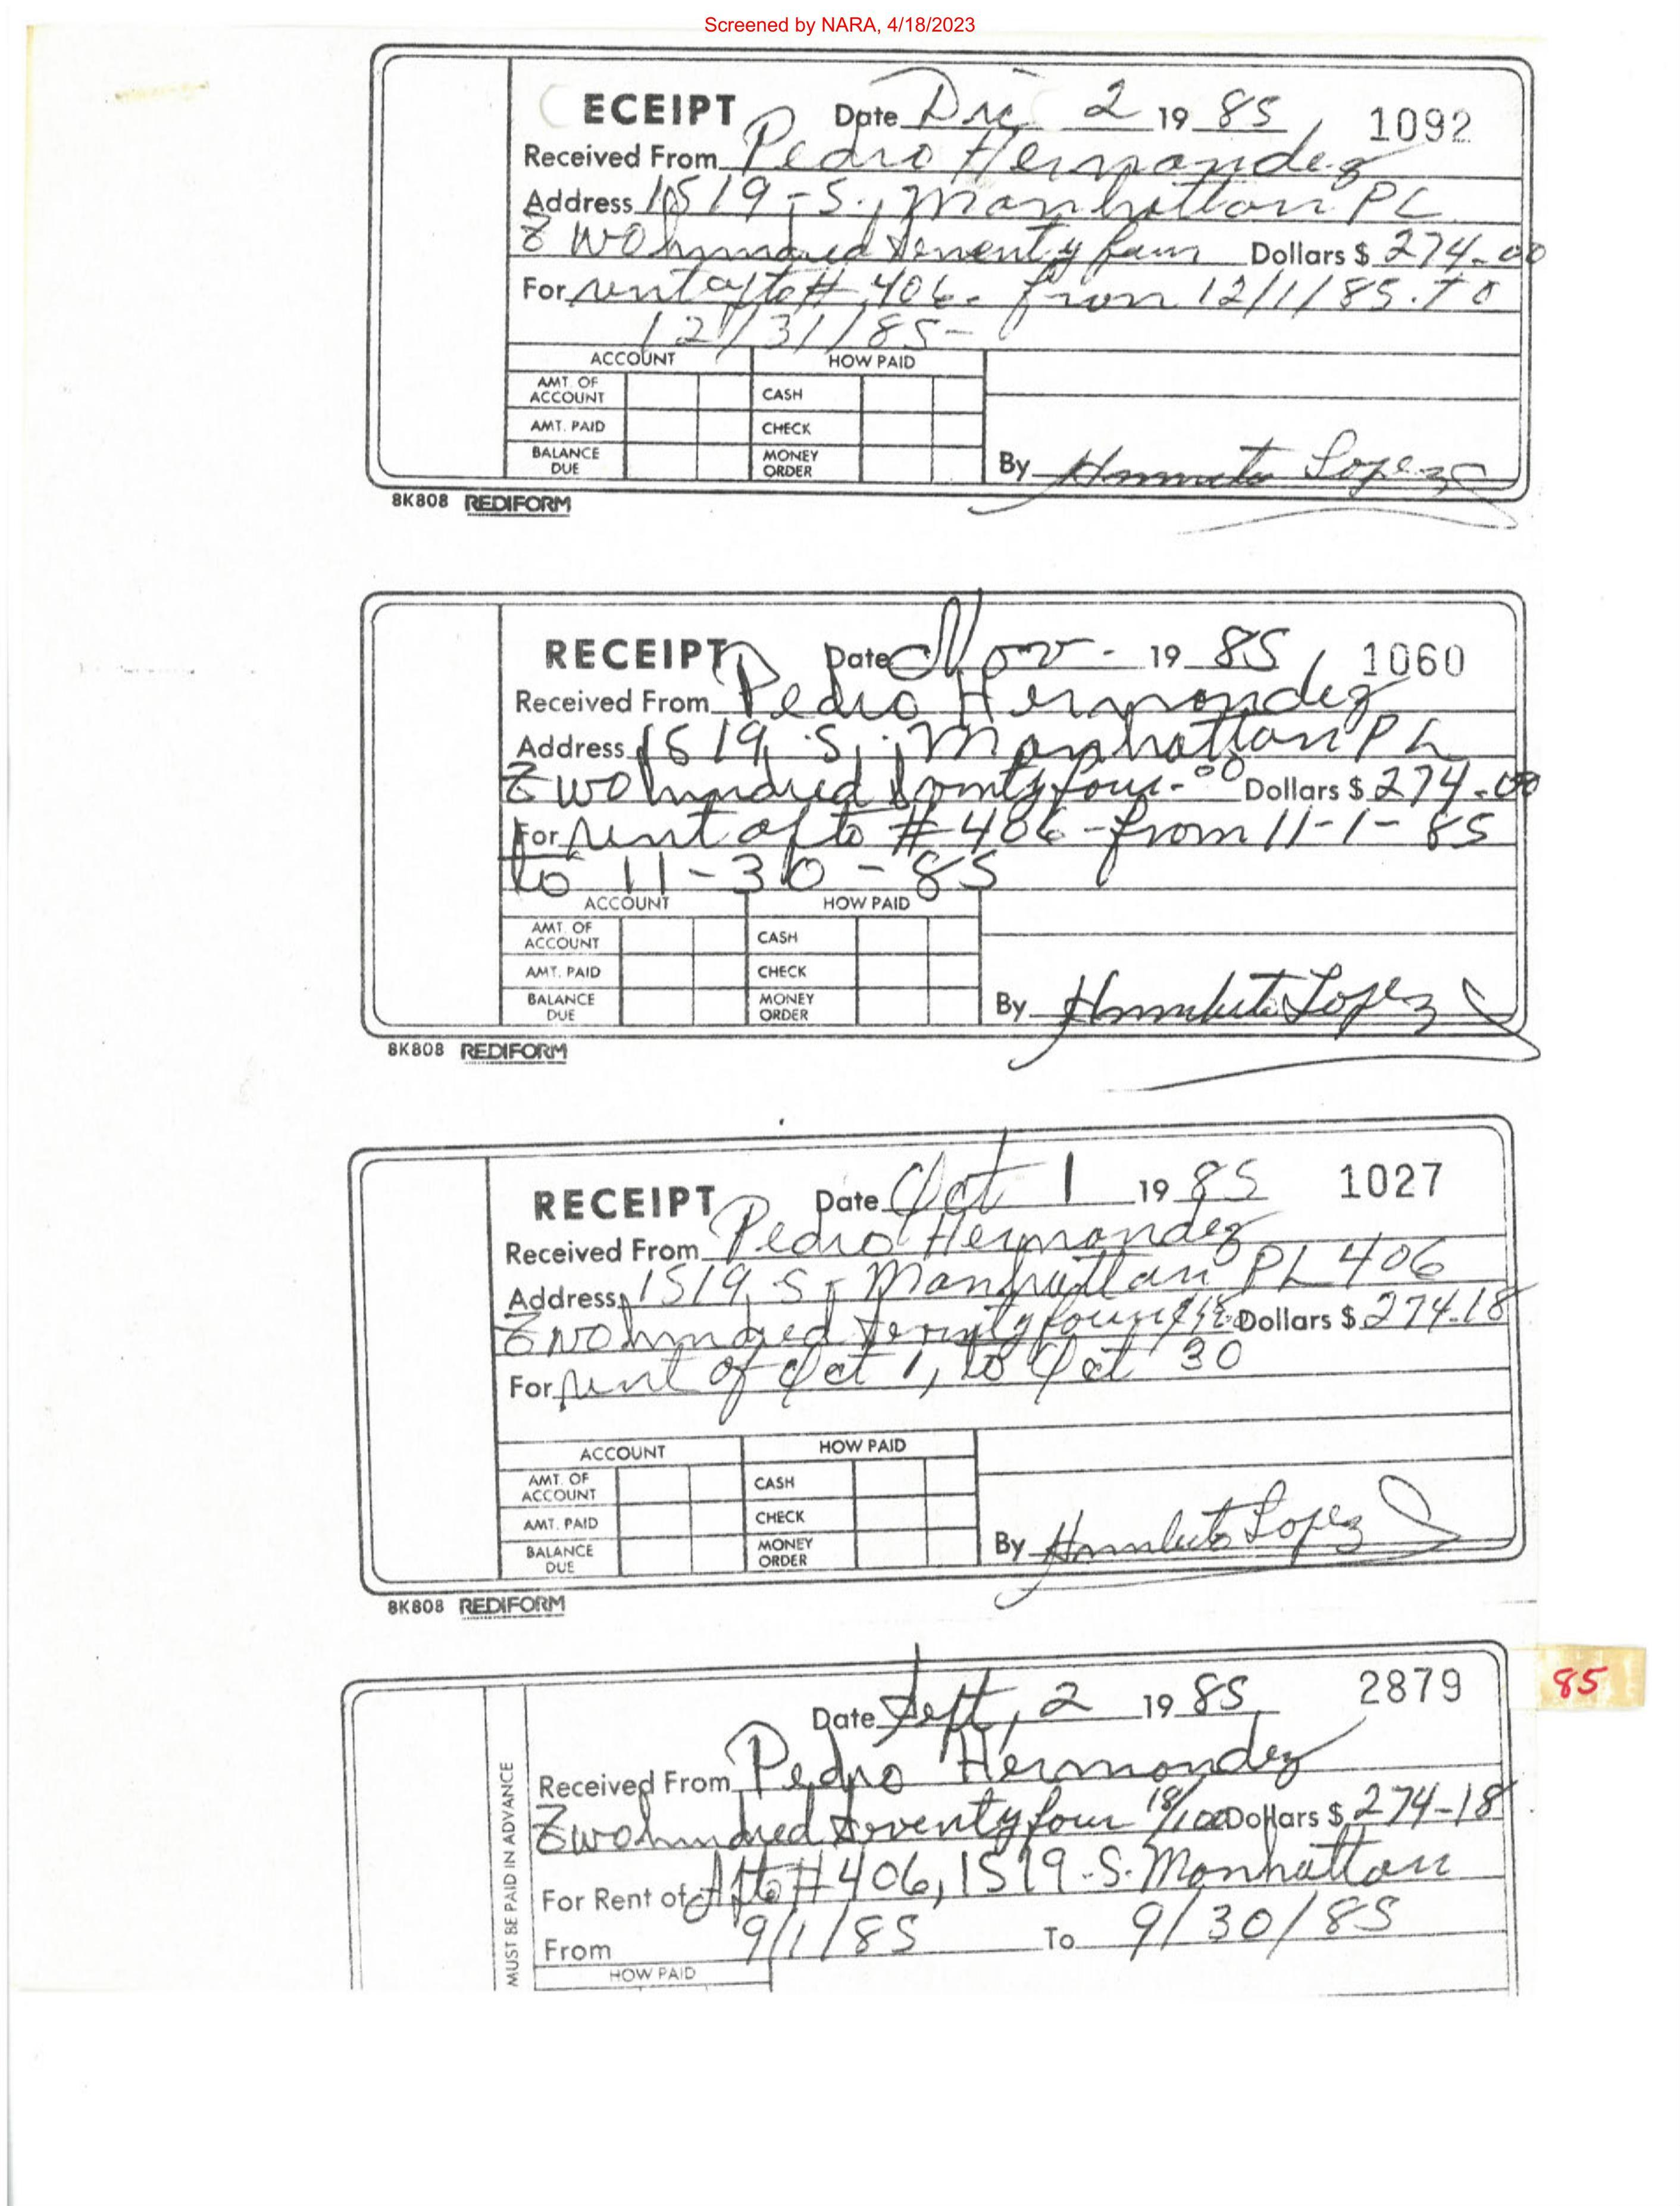 Screened by NARA, 4/18/2023
ECEIPT Date Dic 2 19 85 1092
Received From Pedro Hernandez
Address 1519-S., Manhattan PL
Two hundred seventy four Dollars $ 274.00
For rent apto # 406- from 12/1/85. To
12/31/85-
ACCOUNT HOW PAID
AMT. OF ACCOUNT CASH
AMT. PAID CHECK
BALANCE DUE MONEY ORDER
By Humberto Lopez
8K808 REDIFORM
RECEIPT Date Nov- 19 85 1060
Received From Pedro Hernandez
Address 1519 S., Manhattan PL
Two hundred seventy four- 00 Dollars $ 274.00
For rent apto # 406-from 11-1-85
to 11-30-85
ACCOUNT HOW PAID
AMT. OF ACCOUNT CASH
AMT. PAID CHECK
BALANCE DUE MONEY ORDER
By Humberto Lopez
8K808 REDIFORM
RECEIPT Date Oct 1 19 85 1027
Received From Pedro Hernandez
Address 1519 S- Manhattan PL 406
Two hundred seventy four Dollars $ 274.18
For rent of Oct 1, to Oct 30
ACCOUNT HOW PAID
AMT. OF ACCOUNT CASH
AMT. PAID CHECK
BALANCE DUE MONEY ORDER
By Humberto Lopez
8K808 REDIFORM
Date Sept, 2 19 85 2879
85
MUST BE PAID IN ADVANCE
Received From Pedro Hernandez
Two hundred seventy four 18/100 Dollars $ 274-18
For Rent of Apto # 406, 1519-S. Manhattan
From 9/1/85 To 9/30/85
HOW PAID